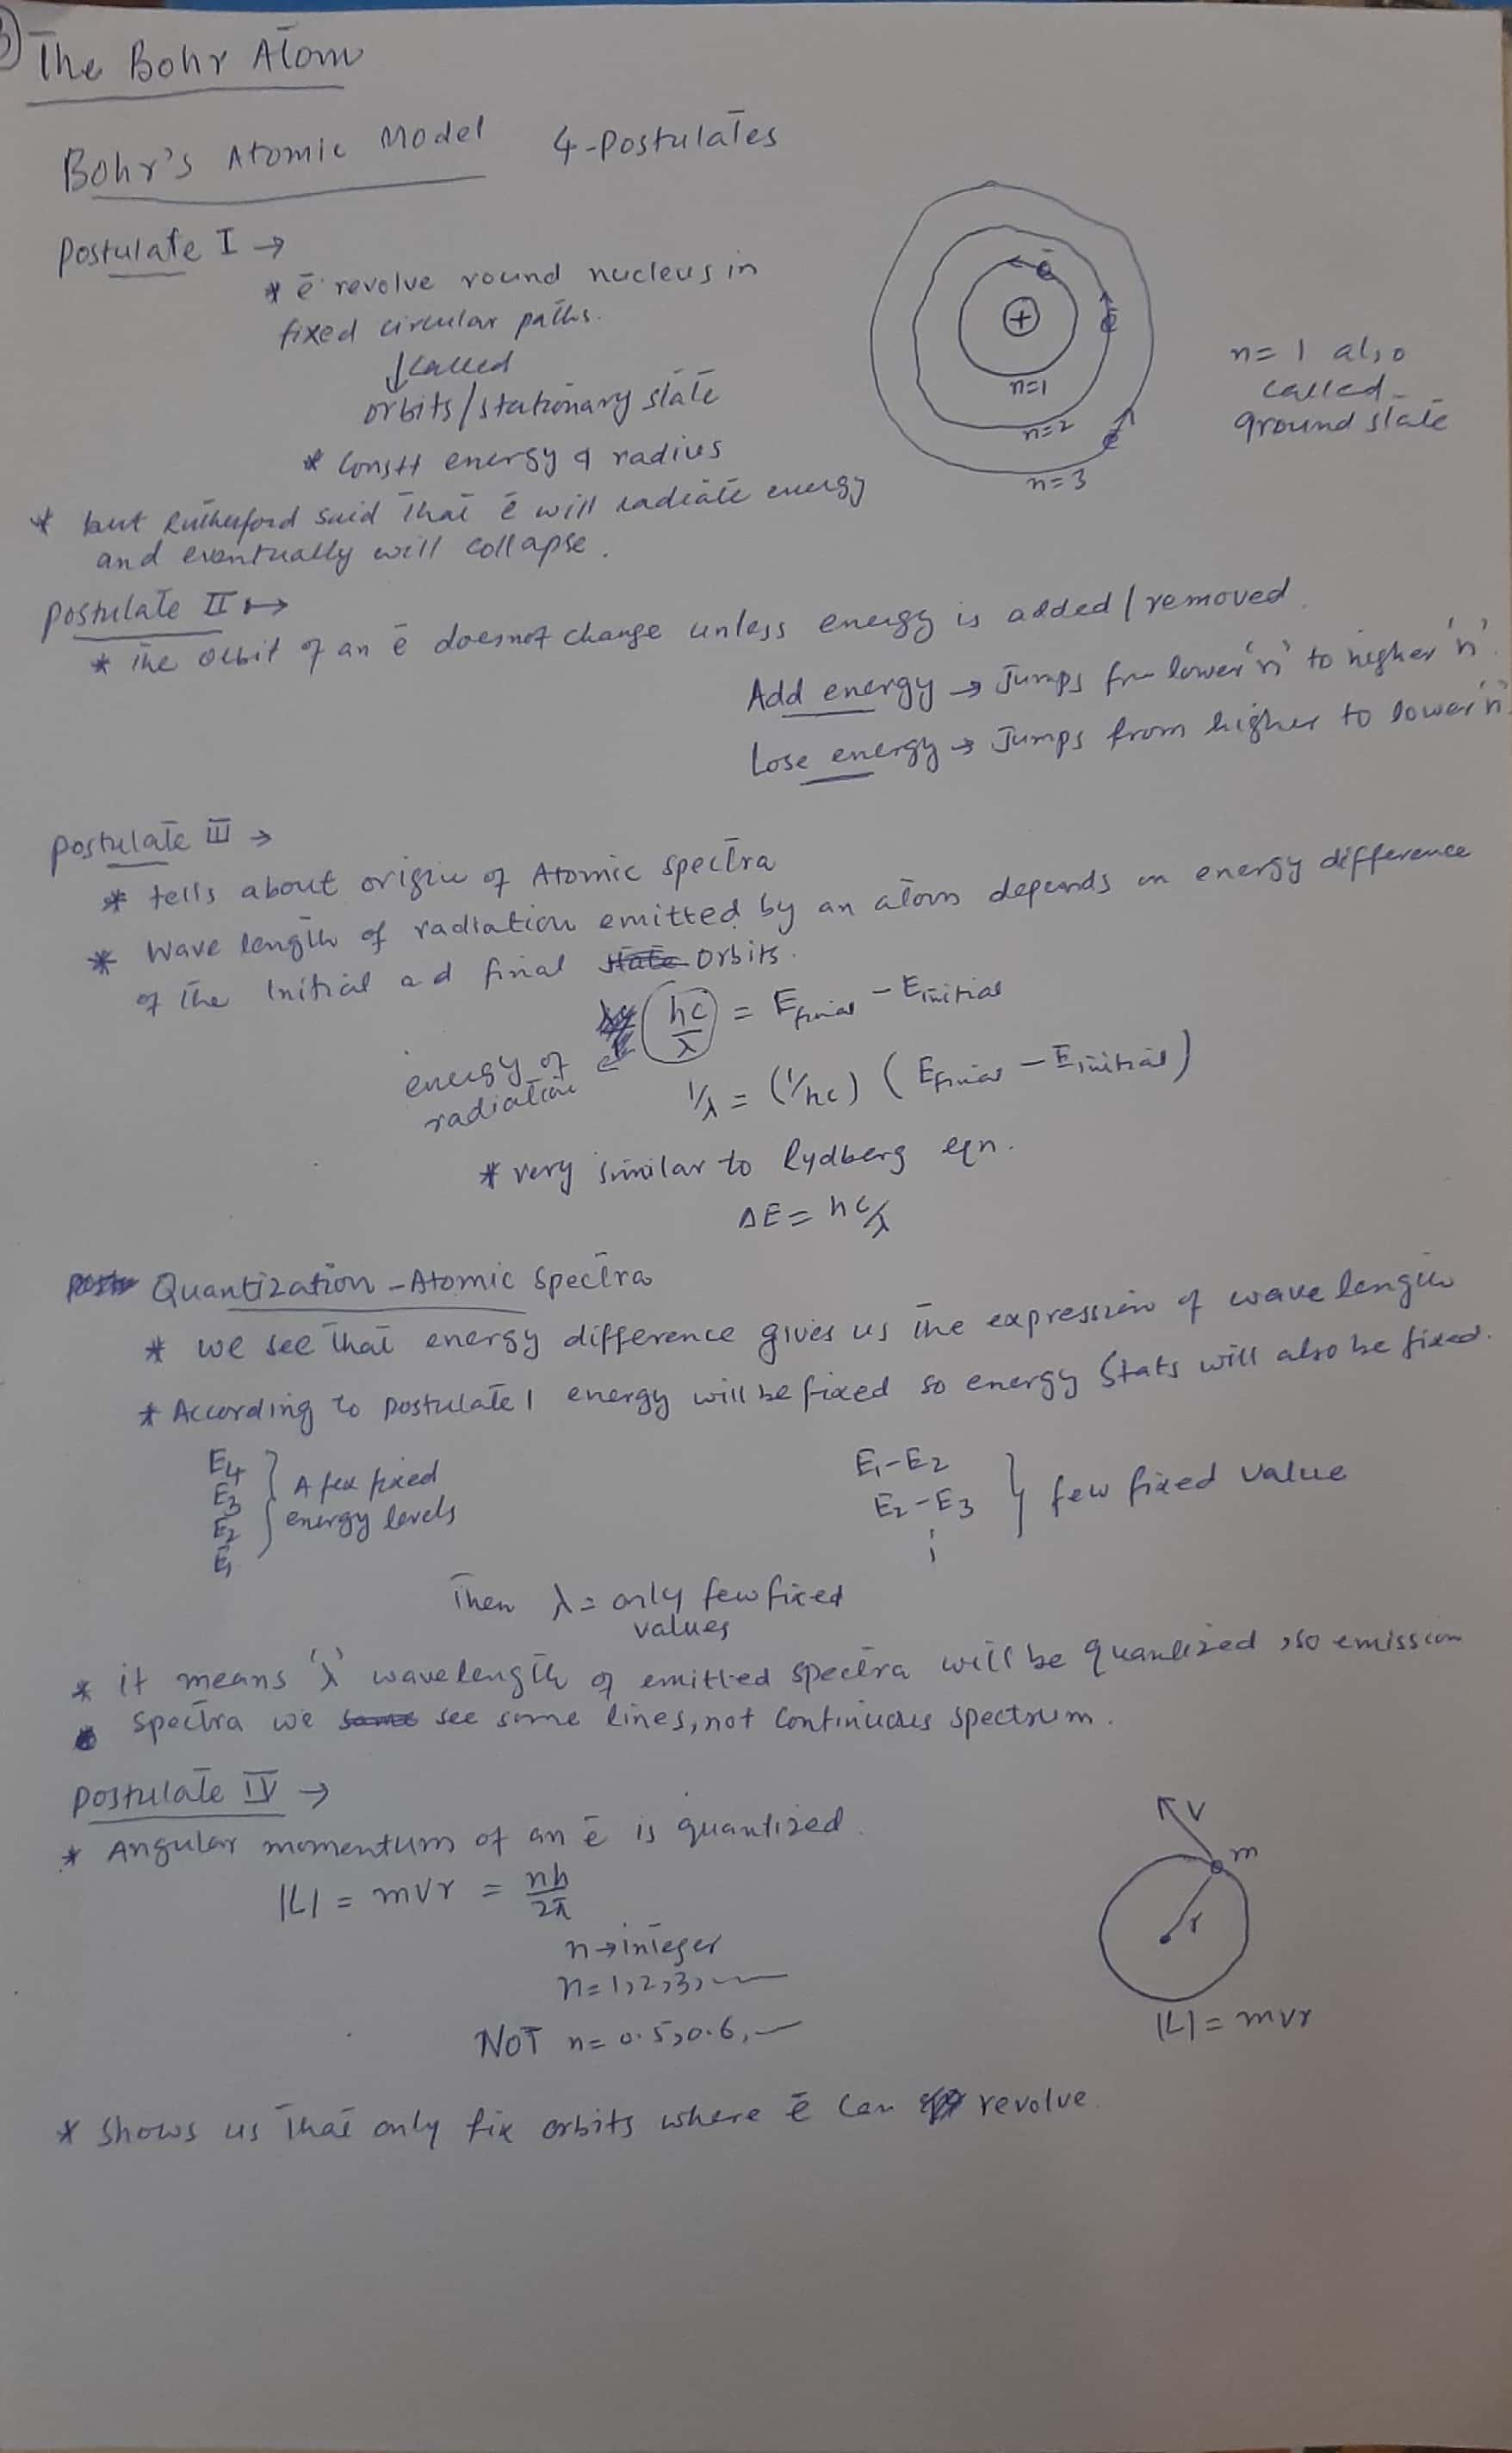 3) The Bohr Atom
Bohr's Atomic Model 4-Postulates
Postulate I →
* ē revolve round nucleus in
fixed circular paths.
↓ called
orbits/stationary state
* Constt energy & radius
ē
+
ē
n=1
n=2
ē
n=3
n=1 also
called
ground state
* but Rutherford said that ē will radiate energy
and eventually will collapse.
Postulate II →
* The orbit of an ē doesnot change unless energy is added/removed.
Add energy → Jumps from lower 'n' to higher 'n'.
Lose energy → Jumps from higher to lower 'n'.
Postulate III →
* tells about origin of Atomic spectra
* Wave length of radiation emitted by an atom depends on energy difference
of the Initial and final state orbits.
energy of radiation ← hc/λ = Efinal - Einitial
1/λ = (1/hc) (Efinal - Einitial)
* very similar to Rydberg eqn.
ΔE = hc/λ
Quantization - Atomic Spectra
* we see that energy difference gives us the expression of wave length
* According to postulate 1 energy will be fixed so energy Stats will also be fixed.
E4
E3
E2
E1
} A few fixed
energy levels
E1-E2
E2-E3
} few fixed value
Then λ = only few fixed
values
* it means 'λ' wavelength of emitted spectra will be quantized, so emission
spectra we some see some lines, not continuous spectrum.
Postulate IV →
* Angular momentum of an ē is quantized.
|L| = mvr = nh/2π
n → integer
n=1,2,3, —
NOT n= 0.5,0.6, —
v
m
r
|L| = mvr
* Shows us that only fix orbits where ē can revolve.